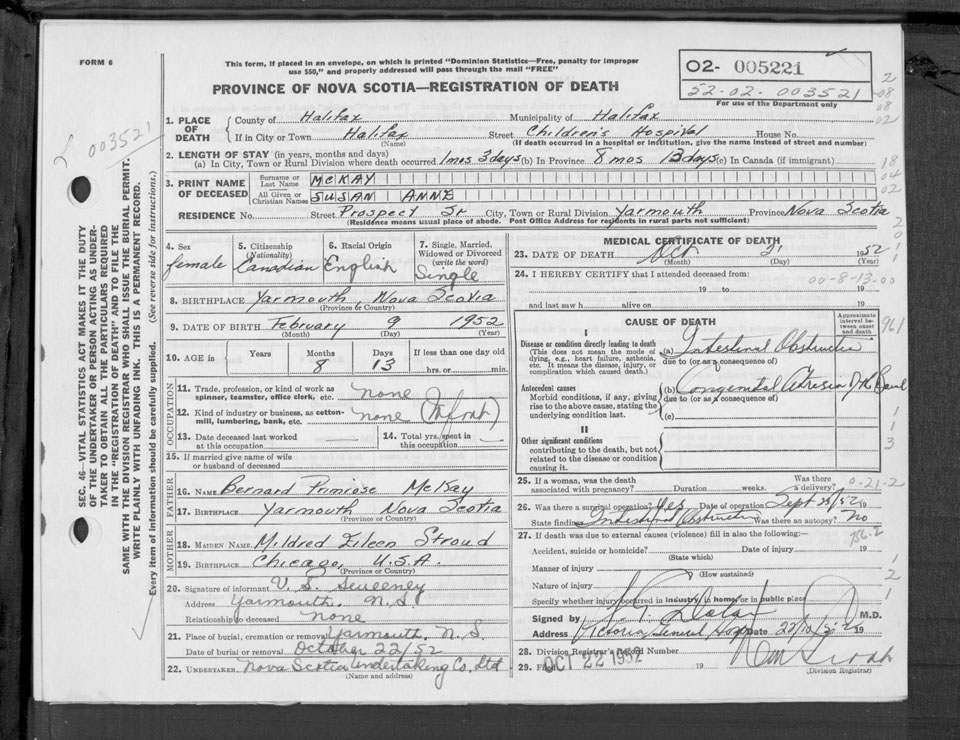 FORM 6
This form, if placed in an envelope, on which is printed "Dominion Statistics—Free, penalty for improper
use $50," and properly addressed will pass through the mail "FREE"
O2- 005221
52-02-003521
For use of the Department only
PROVINCE OF NOVA SCOTIA—REGISTRATION OF DEATH
003521
1. PLACE OF DEATH
County of Halifax Municipality of Halifax
If in City or Town Halifax Street Children's Hospital House No.
(Name) (If death occurred in a hospital or institution, give the name instead of street and number)
2. LENGTH OF STAY (in years, months and days)
(a) In City, Town or Rural Division where death occurred 1mos 3days (b) In Province 8 mos 13days (c) In Canada (if immigrant)
3. PRINT NAME OF DECEASED
Surname or Last Name McKAY
All Given or Christian Names SUSAN ANNE
RESIDENCE No. Street Prospect St City, Town or Rural Division Yarmouth Province Nova Scotia
(Residence means usual place of abode. Post Office Address for residents in rural parts not sufficient)
4. Sex female
5. Citizenship (Nationality) Canadian
6. Racial Origin English
7. Single, Married, Widowed or Divorced (write the word) Single
8. BIRTHPLACE Yarmouth, Nova Scotia
(Province or Country)
9. DATE OF BIRTH February 9 1952
(Month) (Day) (Year)
10. AGE in Years Months Days If less than one day old
8 13 hrs. or min.
OCCUPATION
11. Trade, profession, or kind of work as spinner, teamster, office clerk, etc. none
12. Kind of industry or business, as cotton-mill, lumbering, bank, etc. none (Infant)
13. Date deceased last worked at this occupation —
14. Total yrs. spent in this occupation —
15. If married give name of wife or husband of deceased
FATHER
16. NAME Bernard Primrose McKay
17. BIRTHPLACE Yarmouth Nova Scotia
(Province or Country)
MOTHER
18. MAIDEN NAME Mildred Eileen Stroud
19. BIRTHPLACE Chicago, U.S.A.
(Province or Country)
20. Signature of informant V. S. Sweeney
Address Yarmouth. N.S.
Relationship to deceased None
21. Place of burial, cremation or removal Yarmouth, N.S.
Date of burial or removal October 22/52
22. UNDERTAKER Nova Scotia Undertaking Co. Ltd
(Name and address)
MEDICAL CERTIFICATE OF DEATH
23. DATE OF DEATH Oct 21 1952
(Month) (Day) (Year)
24. I HEREBY CERTIFY that I attended deceased from:
19 to 19
00-8-13-00
and last saw h alive on 19
CAUSE OF DEATH
Approximate interval between onset and death
I
Disease or condition directly leading to death
(This does not mean the mode of dying, e.g., heart failure, asthenia, etc. It means the disease, injury, or complication which caused death.)
(a) Intestinal Obstruction
due to (or as a consequence of)
Antecedent causes
Morbid conditions, if any, giving rise to the above cause, stating the underlying condition last.
(b) Congenital Atresia of the Bowel
due to (or as a consequence of)
(c)
II
Other significant conditions contributing to the death, but not related to the disease or condition causing it.
25. If a woman, was the death associated with pregnancy? Duration weeks. Was there a delivery?
0-21-2
26. Was there a surgical operation? Yes Date of operation Sept 23/52 19
State findings Intestinal Obstruction Was there an autopsy? No
27. If death was due to external causes (violence) fill in also the following:—
756.2
Accident, suicide or homicide? Date of injury 19
(State which)
Manner of injury
(How sustained)
Nature of injury
Specify whether injury occurred in industry, in home, or in public place
Signed by M.D.
Address Victoria General Hosp Date 22/10/52 19
28. Division Registrar's Record Number
29. Filed OCT 22 1952 19
(Division Registrar)
SEC. 46—VITAL STATISTICS ACT MAKES IT THE DUTY
OF THE UNDERTAKER OR PERSON ACTING AS UNDER-
TAKER TO OBTAIN ALL THE PARTICULARS REQUIRED
IN THE "REGISTRATION OF DEATH" AND TO FILE THE
SAME WITH THE DIVISION REGISTRAR WHO SHALL ISSUE THE BURIAL PERMIT.
WRITE PLAINLY WITH UNFADING INK. THIS IS A PERMANENT RECORD.
Every item of information should be carefully supplied. (See reverse side for instructions.)
2
08
08
02
18
04
02
2
0
1
1
961
1
1
3
1
2